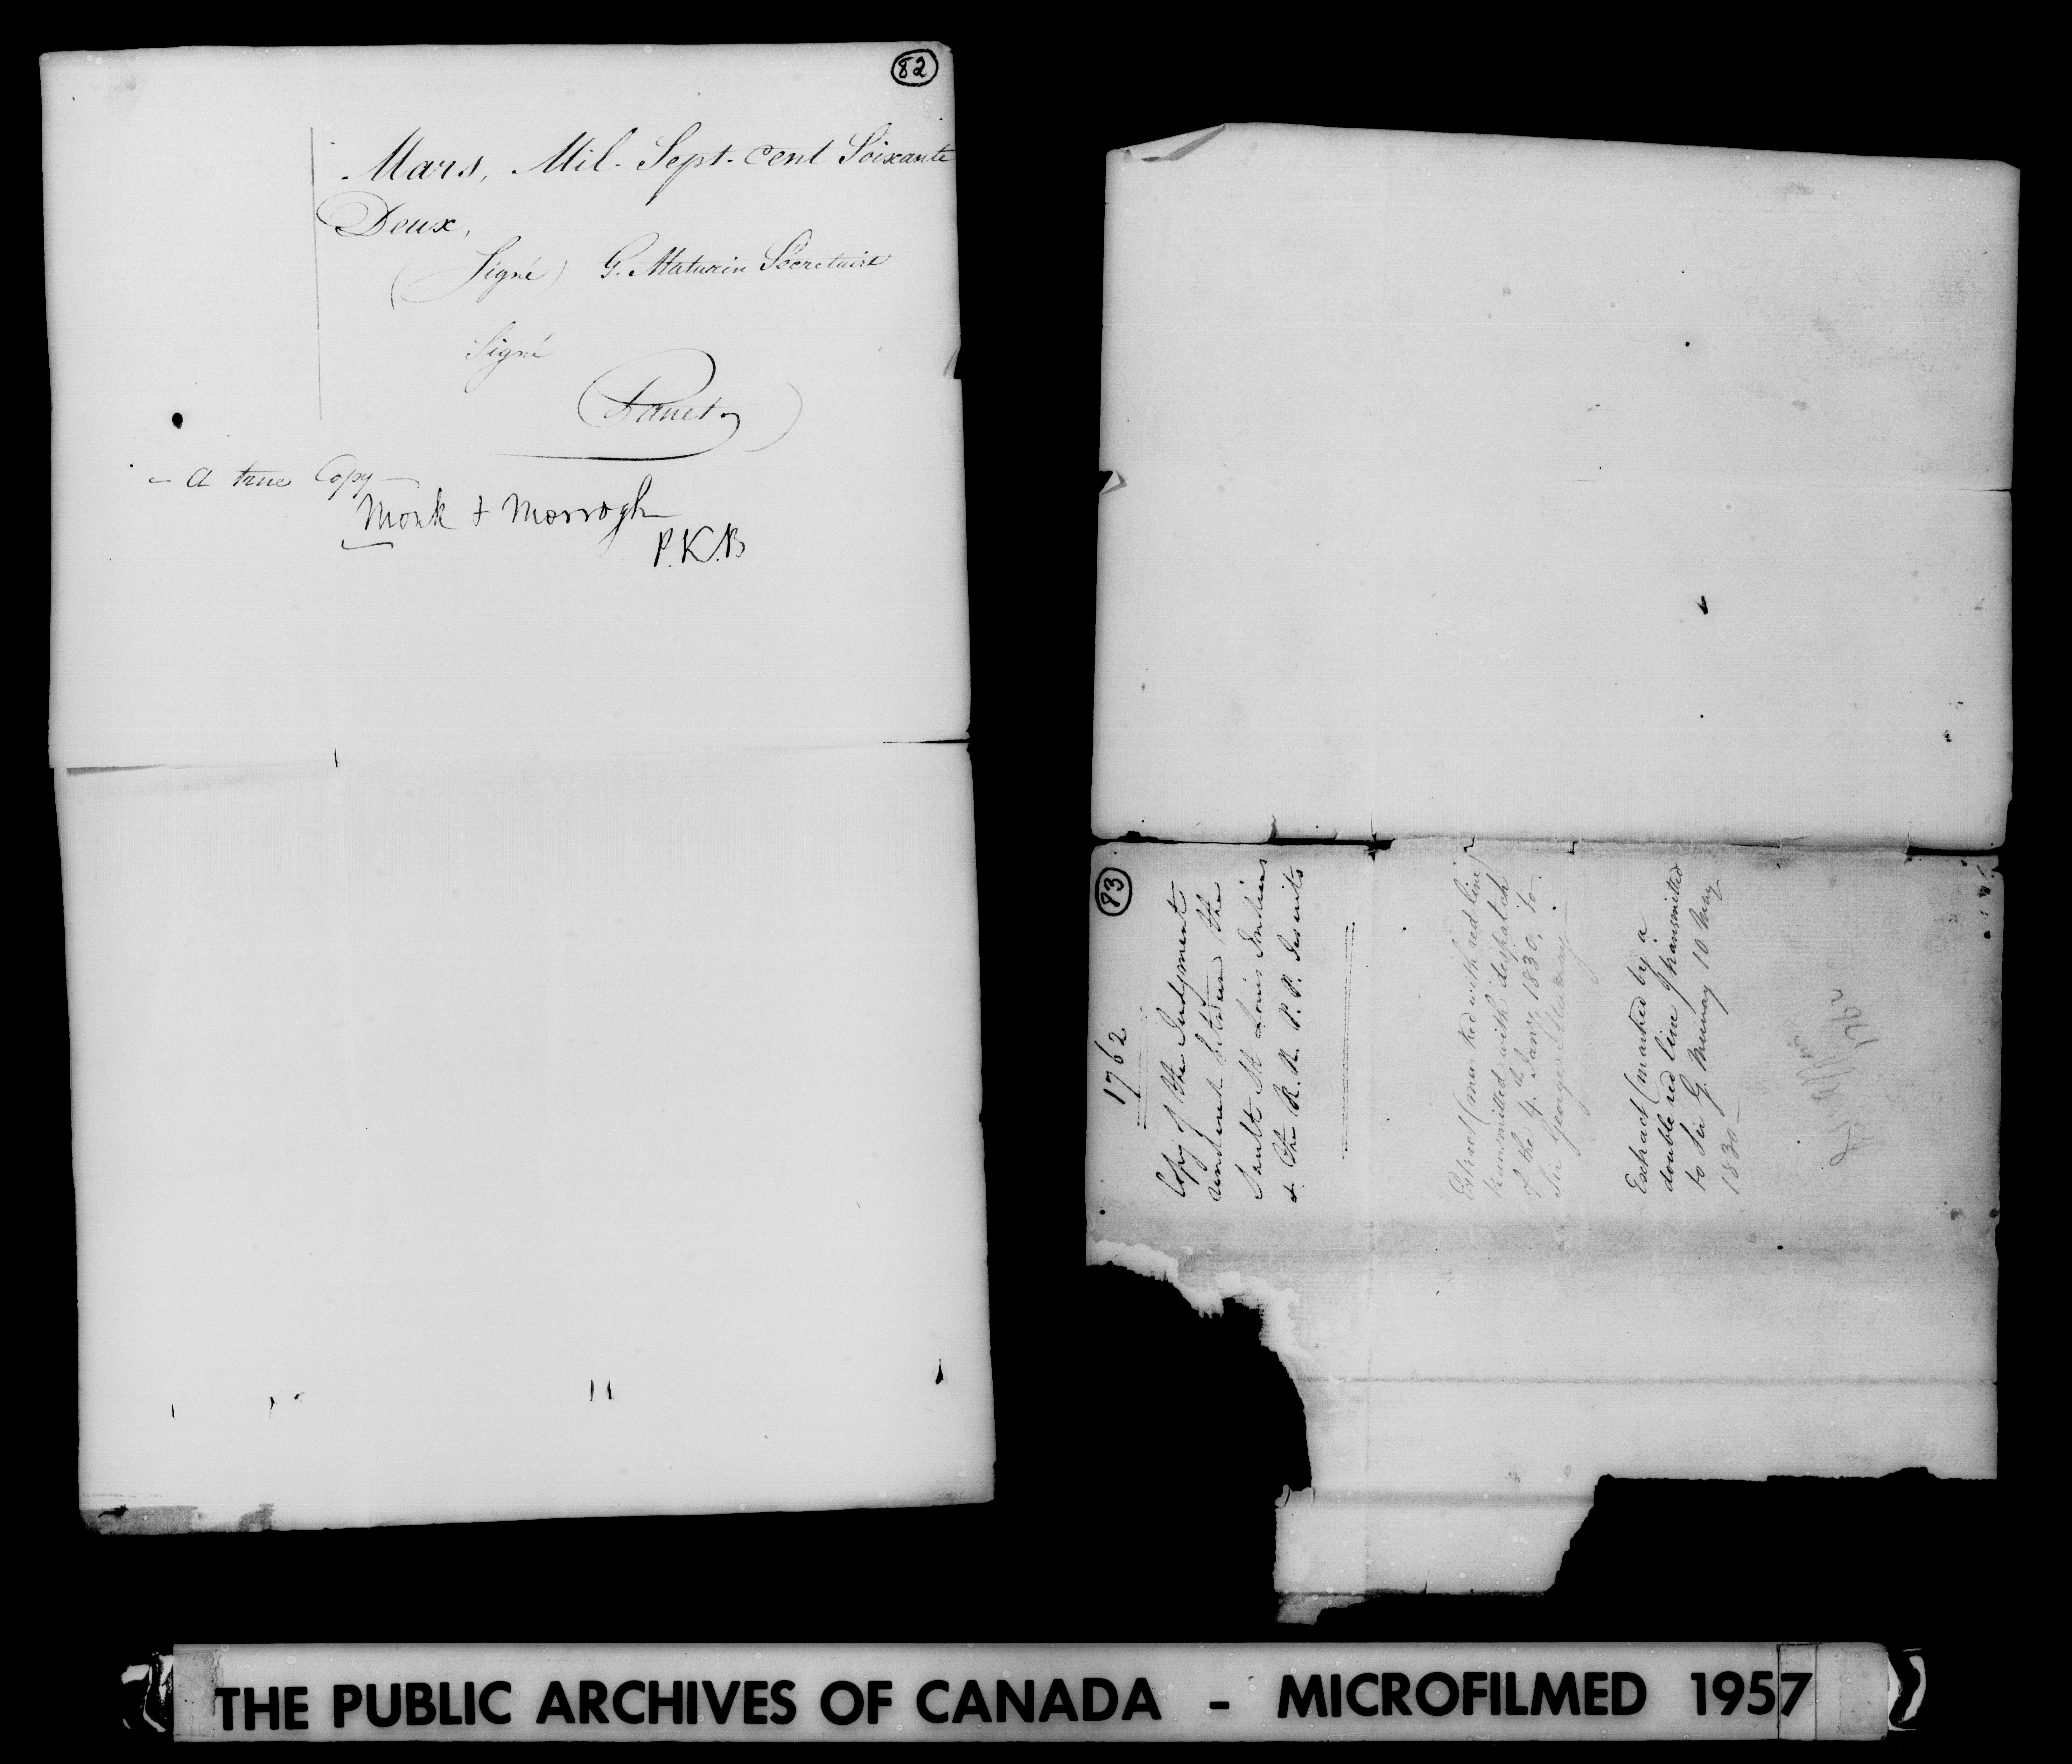 82
Mars, Mil-Sept-Cent Soixante
Deux,
(Signé) G. Maturin Sécretaire
Signé
Panet
- A true Copy -
Monk & Morrogh
P.K.B
83
1762
Copy of the Judgment
rendered between the
Sault St Louis Indians
& the R. R. P. P. Jesuits
Extract (marked with red line)
transmitted with despatch
of the 4th Jany 1830, to
Sir George Murray
Extract (marked by a
double red line) transmitted
to Sir G. Murray 10 May
1830
THE PUBLIC ARCHIVES OF CANADA - MICROFILMED 1957